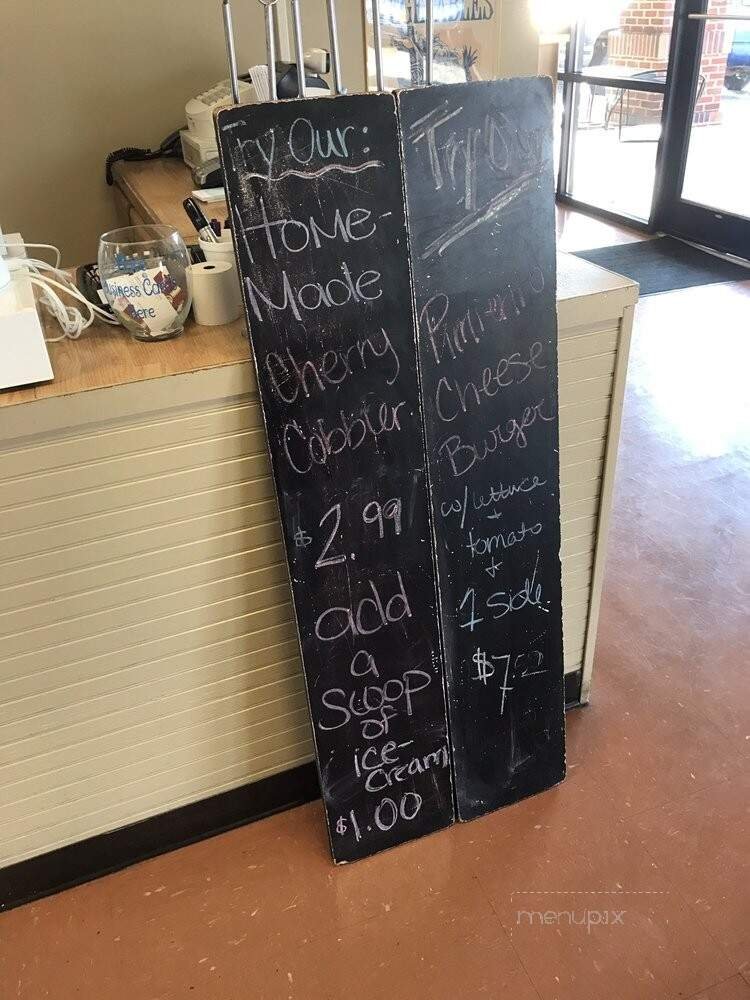 Try Our:
Home-
Made
Cherry
Cobbler
$2.99
add
a
Scoop
of
ice-
cream
$1.00
Try Our
Pimiento
Cheese
Burger
w/ lettuce
+
tomato
+
1 side
Business Cards
Here
menupix